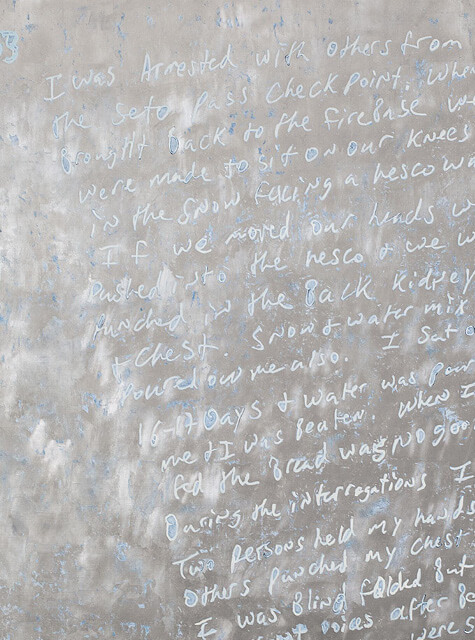 I was Arrested with others from
the Seto Pass Check Point. When
Brought Back to the firebase we
were made to sit on our knees
in the snow facing a hesco wa
If we moved our heads w
Pushed into the hesco & we w
Punched in the Back Kidney
& Chest. Snow & water mix
Poured over me also. I Sat o
16-17 Days & water was pour
me & I was Beaten. When I
fed the Bread was no goo
During the interrogations I
Two persons held my hands
Others Punched my Chest
I was Blind folded But
voices after Be
were